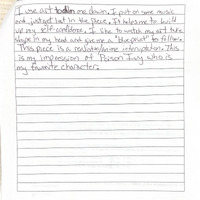 I use art to calm me down. I put on some music
and just get lost in the piece. It helps me to build
up my self-confidence. I like to watch my art take
shape in my head and give me a "blue print" to follow.
This piece is a realistic/anime interpretation. This
is my impression of Poison Ivy who is
my favorite character.